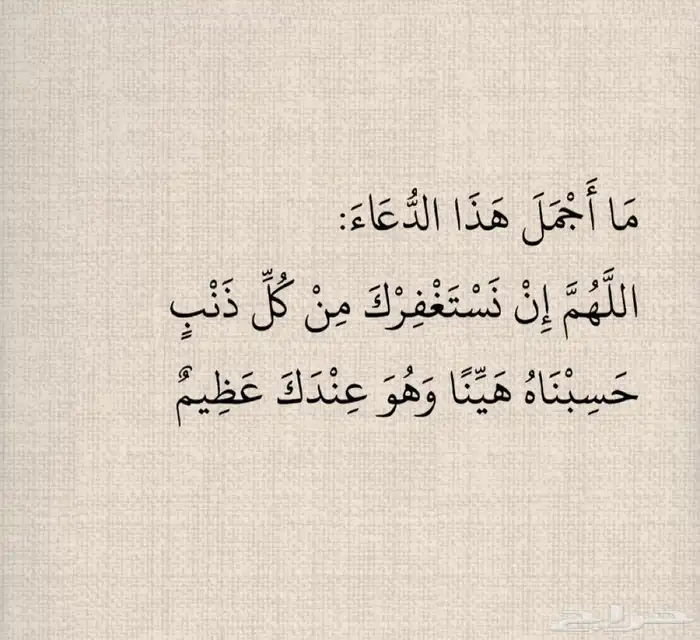 مَا أَجْمَلَ هَذَا الدُّعَاءَ:
اللَّهُمَّ إِنْ نَسْتَغْفِرْكَ مِنْ كُلِّ ذَنْبٍ
حَسِبْنَاهُ هَيِّنًا وَهُوَ عِنْدَكَ عَظِيمٌ
حراج